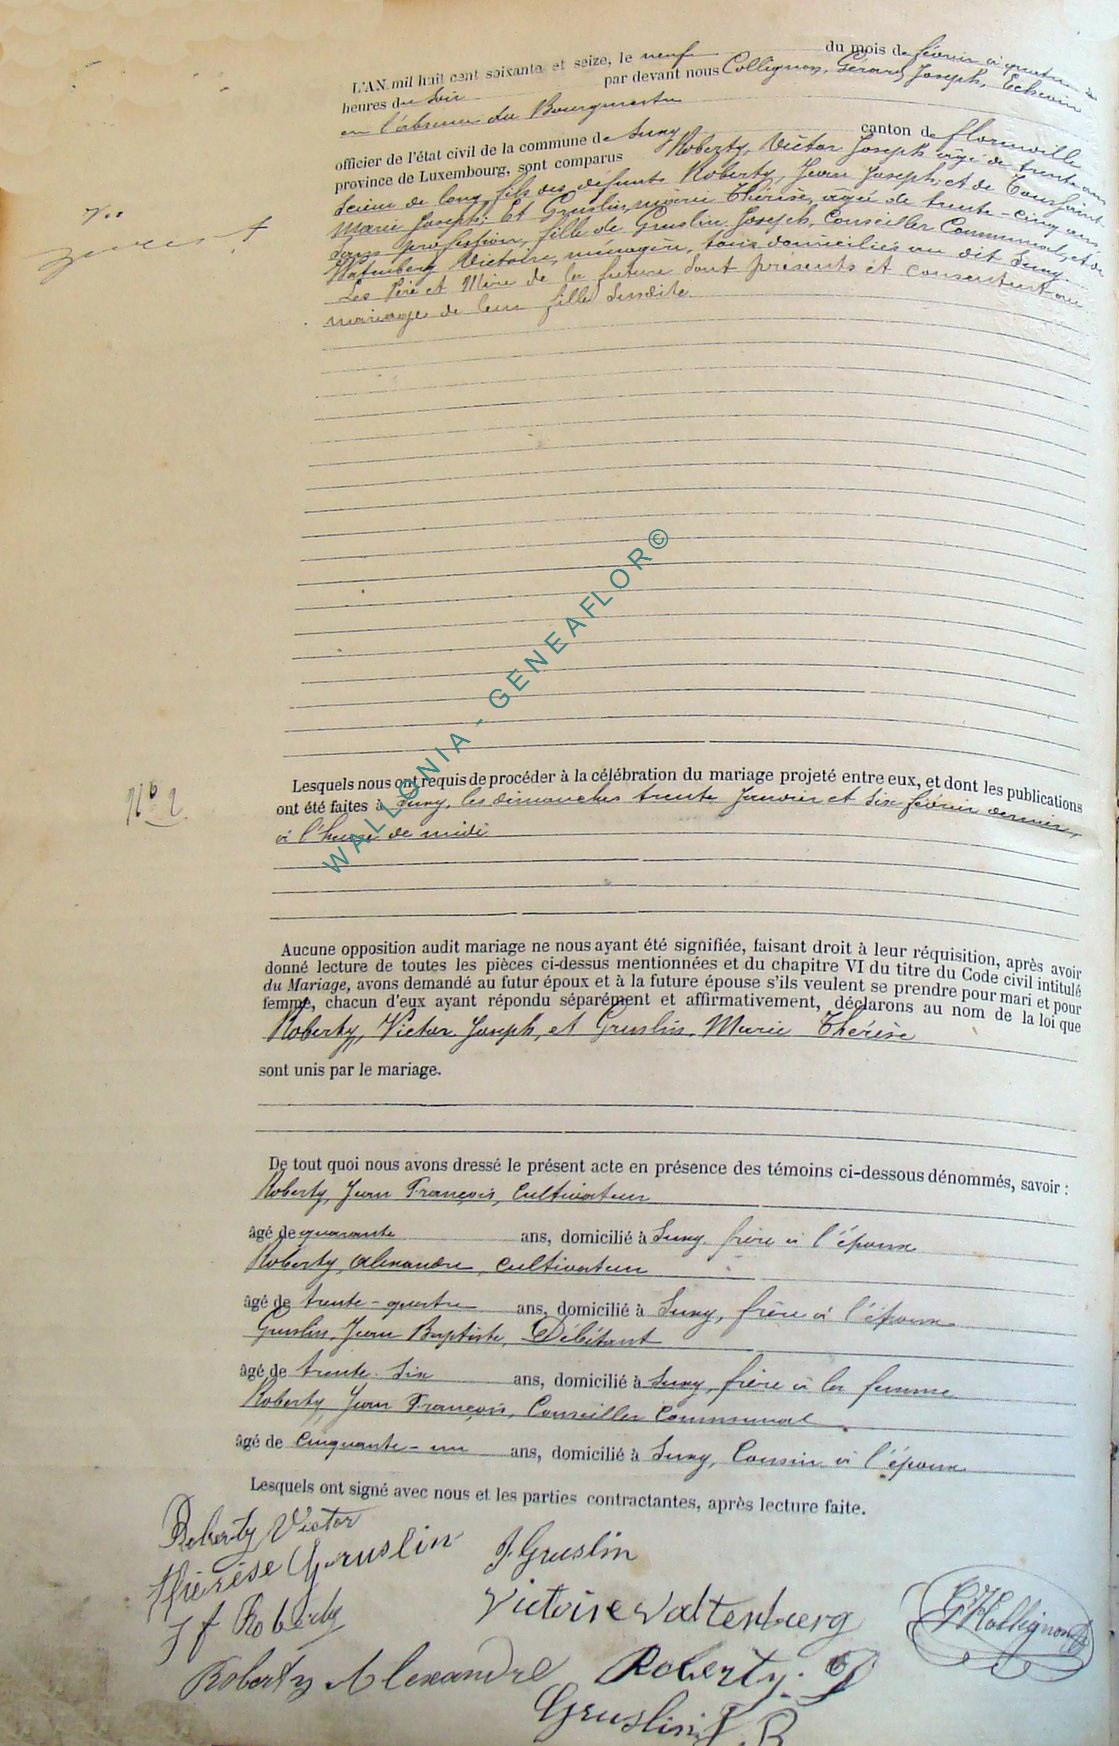 L'AN mil huit cent soixante et seize, le neuf du mois de février à quatre
heures du soir par devant nous Collignon, Gérard Joseph, Echevin
en l'absence du Bourgmestre
officier de l'état civil de la commune de Suny canton de florenville
province de Luxembourg, sont comparus Roberty, Victor Joseph âgé de trente ans
Scieur de long fils des défunts Roberty, Jean Joseph, et de Toussaint
Marie Joseph; Et Gruslin, Marie Thérèse, âgée de trente-cinq ans,
Sans profession, fille de Gruslin Joseph, Conseiller Communal, et de
Watenberg Victoire, ménagère, tous domiciliés au dit Suny.
Les Père et Mère de la future sont présents et consentent au
mariage de leur fille Susdite.
N° 2
Lesquels nous ont requis de procéder à la célébration du mariage projeté entre eux, et dont les publications
ont été faites à Suny, les dimanches trente Janvier et six février dernier,
à l'heure de midi
Aucune opposition audit mariage ne nous ayant été signifiée, faisant droit à leur réquisition, après avoir
donné lecture de toutes les pièces ci-dessus mentionnées et du chapitre VI du titre du Code civil intitulé
du Mariage, avons demandé au futur époux et à la future épouse s'ils veulent se prendre pour mari et pour
femme, chacun d'eux ayant répondu séparément et affirmativement, déclarons au nom de la loi que
Roberty, Victor Joseph, et Gruslin, Marie Thérèse
sont unis par le mariage.
De tout quoi nous avons dressé le présent acte en présence des témoins ci-dessous dénommés, savoir :
Roberty, Jean François, Cultivateur
âgé de quarante ans, domicilié à Suny frère à l'époux
Roberty Alexandre, Cultivateur
âgé de trente-quatre ans, domicilié à Suny, frère à l'époux
Gruslin, Jean Baptiste, Débitant
âgé de trente-six ans, domicilié à Suny, frère à la femme
Roberty, Jean François, Conseiller Communal
âgé de cinquante-un ans, domicilié à Suny, Cousin à l'époux
Lesquels ont signé avec nous et les parties contractantes, après lecture faite.
Roberty Victor
thérèse Gruslin J. Gruslin
J f Roberty Victoire Waltenberg G J Collignon
Roberty Alexandre Roberty. J
Gruslin J B
WALLONIA - GENEAFLOR©